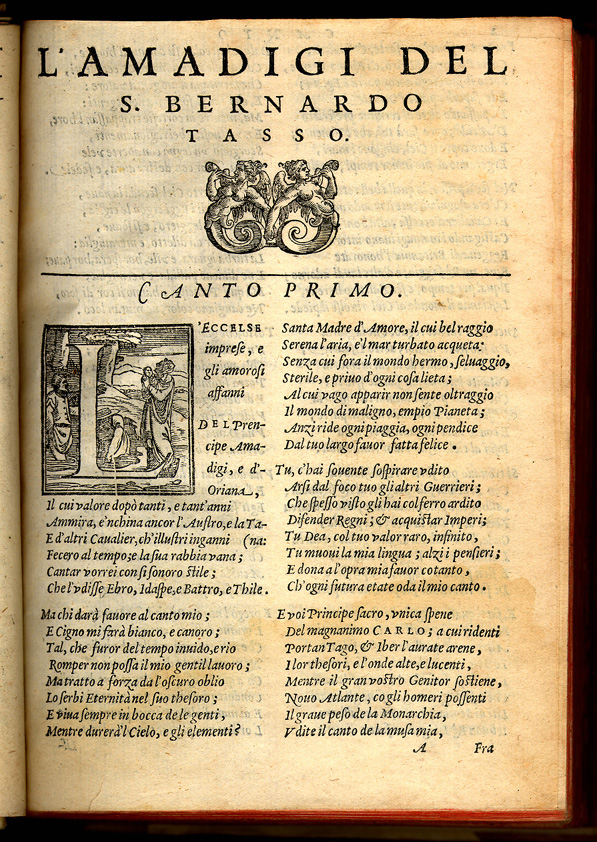 L'AMADIGI DEL
S. BERNARDO
TASSO.
CANTO PRIMO.
L'ECCELSE
imprese, e
gli amorosi
affanni
DEL Pren-
cipe Ama-
digi, e d'-
Oriana,
Il cui valore dopò tanti, e tant'anni
Ammira, e'nchina ancor l'Austro, e la Ta-
E d'altri Caualier, ch'illustri inganni (na:
Fecero al tempo; e la sua rabbia vana;
Cantar vorrei con sì sonoro stile;
Che l'vdisse Ebro, Idaspe, e Battro, e Thile.
Ma chi darà fauore al canto mio;
E Cigno mi farà bianco, e canoro;
Tal, che furor del tempo inuido, e rio
Romper non possa il mio gentil lauoro;
Ma tratto a forza da l'oscuro oblio
Lo serbi Eternità nel suo thesoro;
E viua sempre in bocca de le genti,
Mentre durerà'l Cielo, e gli elementi?
Santa Madre d'Amore, il cui bel raggio
Serena l'aria, e'l mar turbato acqueta;
Senza cui fora il mondo hermo, seluaggio,
Sterile, e priuo d'ogni cosa lieta;
Al cui vago apparir non sente oltraggio
Il mondo di maligno, empio Pianeta;
Anzi ride ogni piaggia, ogni pendice
Dal tuo largo fauor fatta felice.
Tu, c'hai souente sospirare vdito
Arsi dal foco tuo gli altri Guerrieri;
Che spesso visto gli hai col ferro ardito
Difender Regni; & acquistar Imperi;
Tu Dea, col tuo valor raro, infinito,
Tu muoui la mia lingua; alzi i pensieri;
E dona a l'opra mia fauor cotanto,
Ch'ogni futura etate oda il mio canto.
E voi Principe sacro, vnica spene
Del magnanimo CARLO; a cui ridenti
Portan Tago, & Iber l'aurate arene,
I lor thesori, e l'onde alte, e lucenti,
Mentre il gran vostro Genitor sostiene,
Nouo Atlante, co gli homeri possenti
Il graue peso de la Monarchia,
Vdite il canto de la musa mia,
A Fra